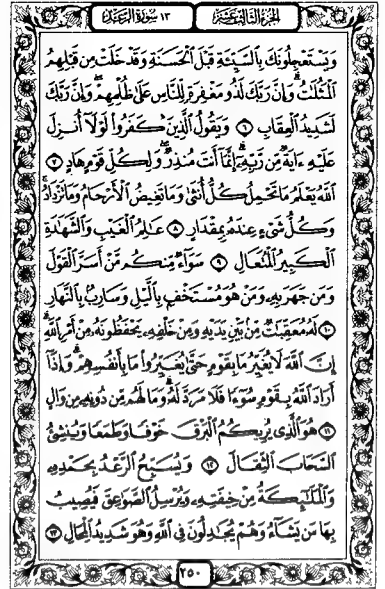 الجزء الثالث عشر ١٣ سورة الرعد
وَيَسْتَعْجِلُونَكَ بِالسَّيِّئَةِ قَبْلَ الْحَسَنَةِ وَقَدْ خَلَتْ مِن قَبْلِهِمُ
الْمَثُلَٰتُ ۗ وَإِنَّ رَبَّكَ لَذُو مَغْفِرَةٍ لِّلنَّاسِ عَلَىٰ ظُلْمِهِمْ ۖ وَإِنَّ رَبَّكَ
لَشَدِيدُ الْعِقَابِ ٦ وَيَقُولُ الَّذِينَ كَفَرُوا لَوْلَا أُنزِلَ
عَلَيْهِ ءَايَةٌ مِّن رَّبِّهِ ۗ إِنَّمَا أَنتَ مُنذِرٌ ۖ وَلِكُلِّ قَوْمٍ هَادٍ ٧
اللَّهُ يَعْلَمُ مَا تَحْمِلُ كُلُّ أُنثَىٰ وَمَا تَغِيضُ الْأَرْحَامُ وَمَا تَزْدَادُ ۖ
وَكُلُّ شَيْءٍ عِندَهُ بِمِقْدَارٍ ٨ عَٰلِمُ الْغَيْبِ وَالشَّهَٰدَةِ
الْكَبِيرُ الْمُتَعَالِ ٩ سَوَاءٌ مِّنكُم مَّنْ أَسَرَّ الْقَوْلَ
وَمَن جَهَرَ بِهِ وَمَنْ هُوَ مُسْتَخْفٍ بِالَّيْلِ وَسَارِبٌ بِالنَّهَارِ
١٠ لَهُ مُعَقِّبَٰتٌ مِّن بَيْنِ يَدَيْهِ وَمِنْ خَلْفِهِ يَحْفَظُونَهُ مِنْ أَمْرِ اللَّهِ ۗ
إِنَّ اللَّهَ لَا يُغَيِّرُ مَا بِقَوْمٍ حَتَّىٰ يُغَيِّرُوا مَا بِأَنفُسِهِمْ ۗ وَإِذَا
أَرَادَ اللَّهُ بِقَوْمٍ سُوءًا فَلَا مَرَدَّ لَهُ ۚ وَمَا لَهُم مِّن دُونِهِ مِن وَالٍ
١١ هُوَ الَّذِي يُرِيكُمُ الْبَرْقَ خَوْفًا وَطَمَعًا وَيُنشِئُ
السَّحَابَ الثِّقَالَ ١٢ وَيُسَبِّحُ الرَّعْدُ بِحَمْدِهِ
وَالْمَلَٰئِكَةُ مِنْ خِيفَتِهِ وَيُرْسِلُ الصَّوَٰعِقَ فَيُصِيبُ
بِهَا مَن يَشَاءُ وَهُمْ يُجَٰدِلُونَ فِي اللَّهِ وَهُوَ شَدِيدُ الْمِحَالِ ١٣
٢٥٠